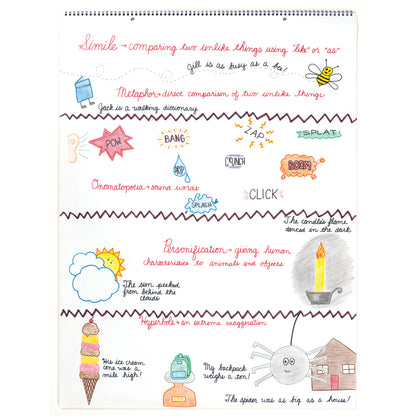 Simile → comparing two unlike things using "like" or "as"
Jill is as busy as a bee!
Metaphor → direct comparison of two unlike things
Jack is a walking dictionary.
POW
BANG
ZAP
SPLAT
DRIP
CRUNCH
BOOM
Onomatopoeia → sound words
SPLASH
CLICK
The candle's flame
danced in the dark.
Personification → giving human
characteristics to animals and objects
The sun peeked
from behind the
clouds
Hyperbole → an extreme exaggeration
His ice cream
cone was a
mile high!
My backpack
weighs a ton!
The spider was as big as a house!